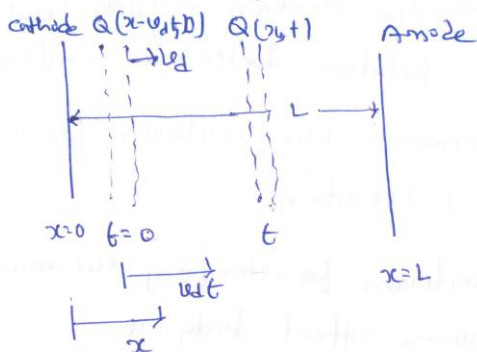 Cathode Q(x-vdt,0) Q(x,t) Anode
vd
L
x=0 t=0 t x=L
vdt
x